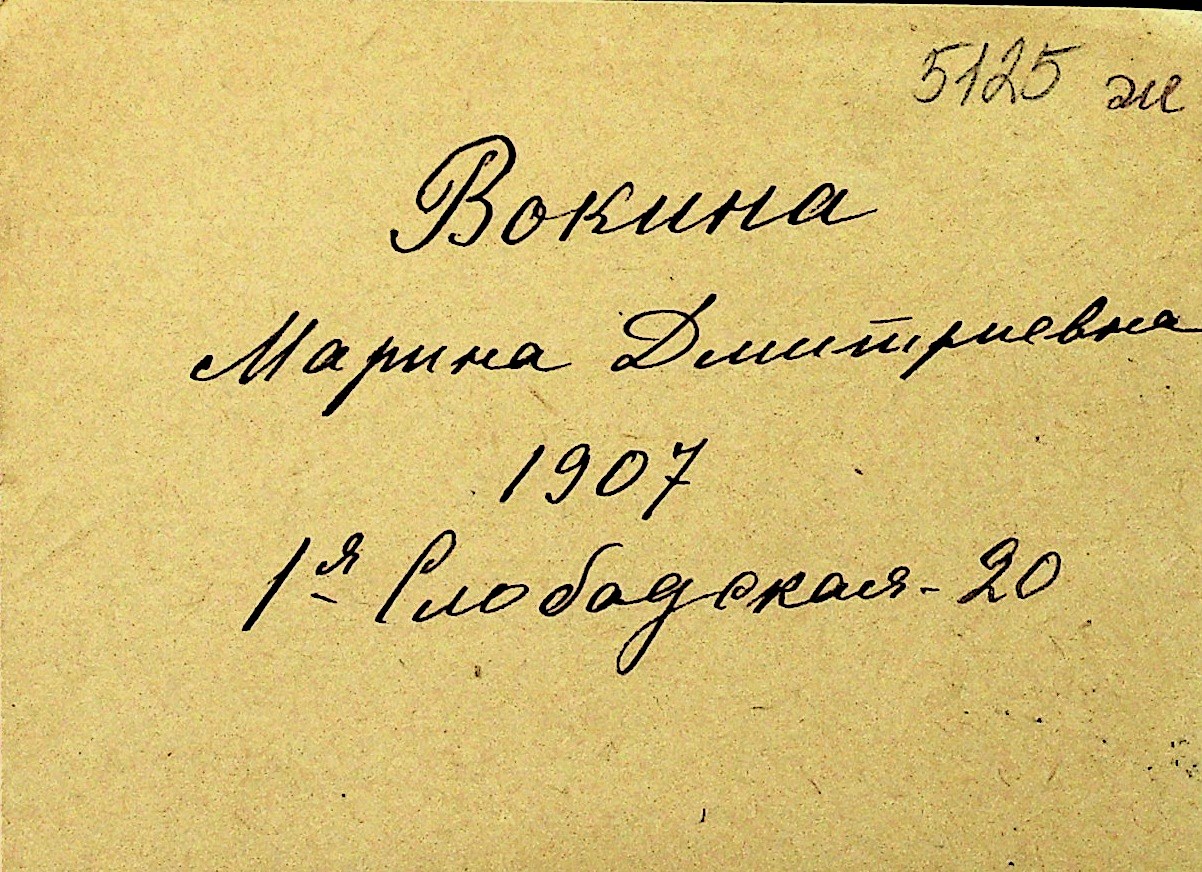 5125 ж
Вокина
Марина Дмитриевна
1907
1я Слободская-20